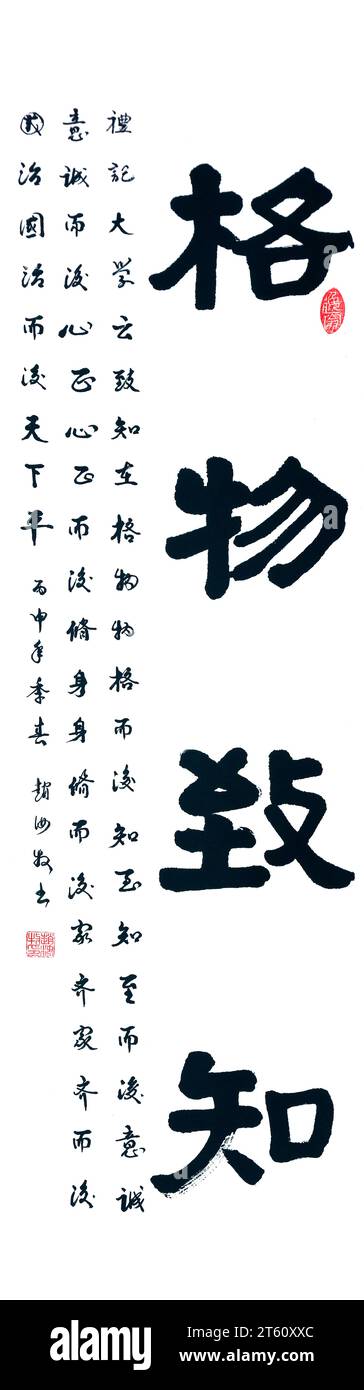 格物致知
禮記大学云致知在格物物格而後知至知至而後意誠
意誠而後心正心正而後脩身身脩而後家齊家齊而後
國治國治而後天下平 丙申年季春 趙汝书
a
a
a
alamy
Image ID: 2T60XXC
www.alamy.com